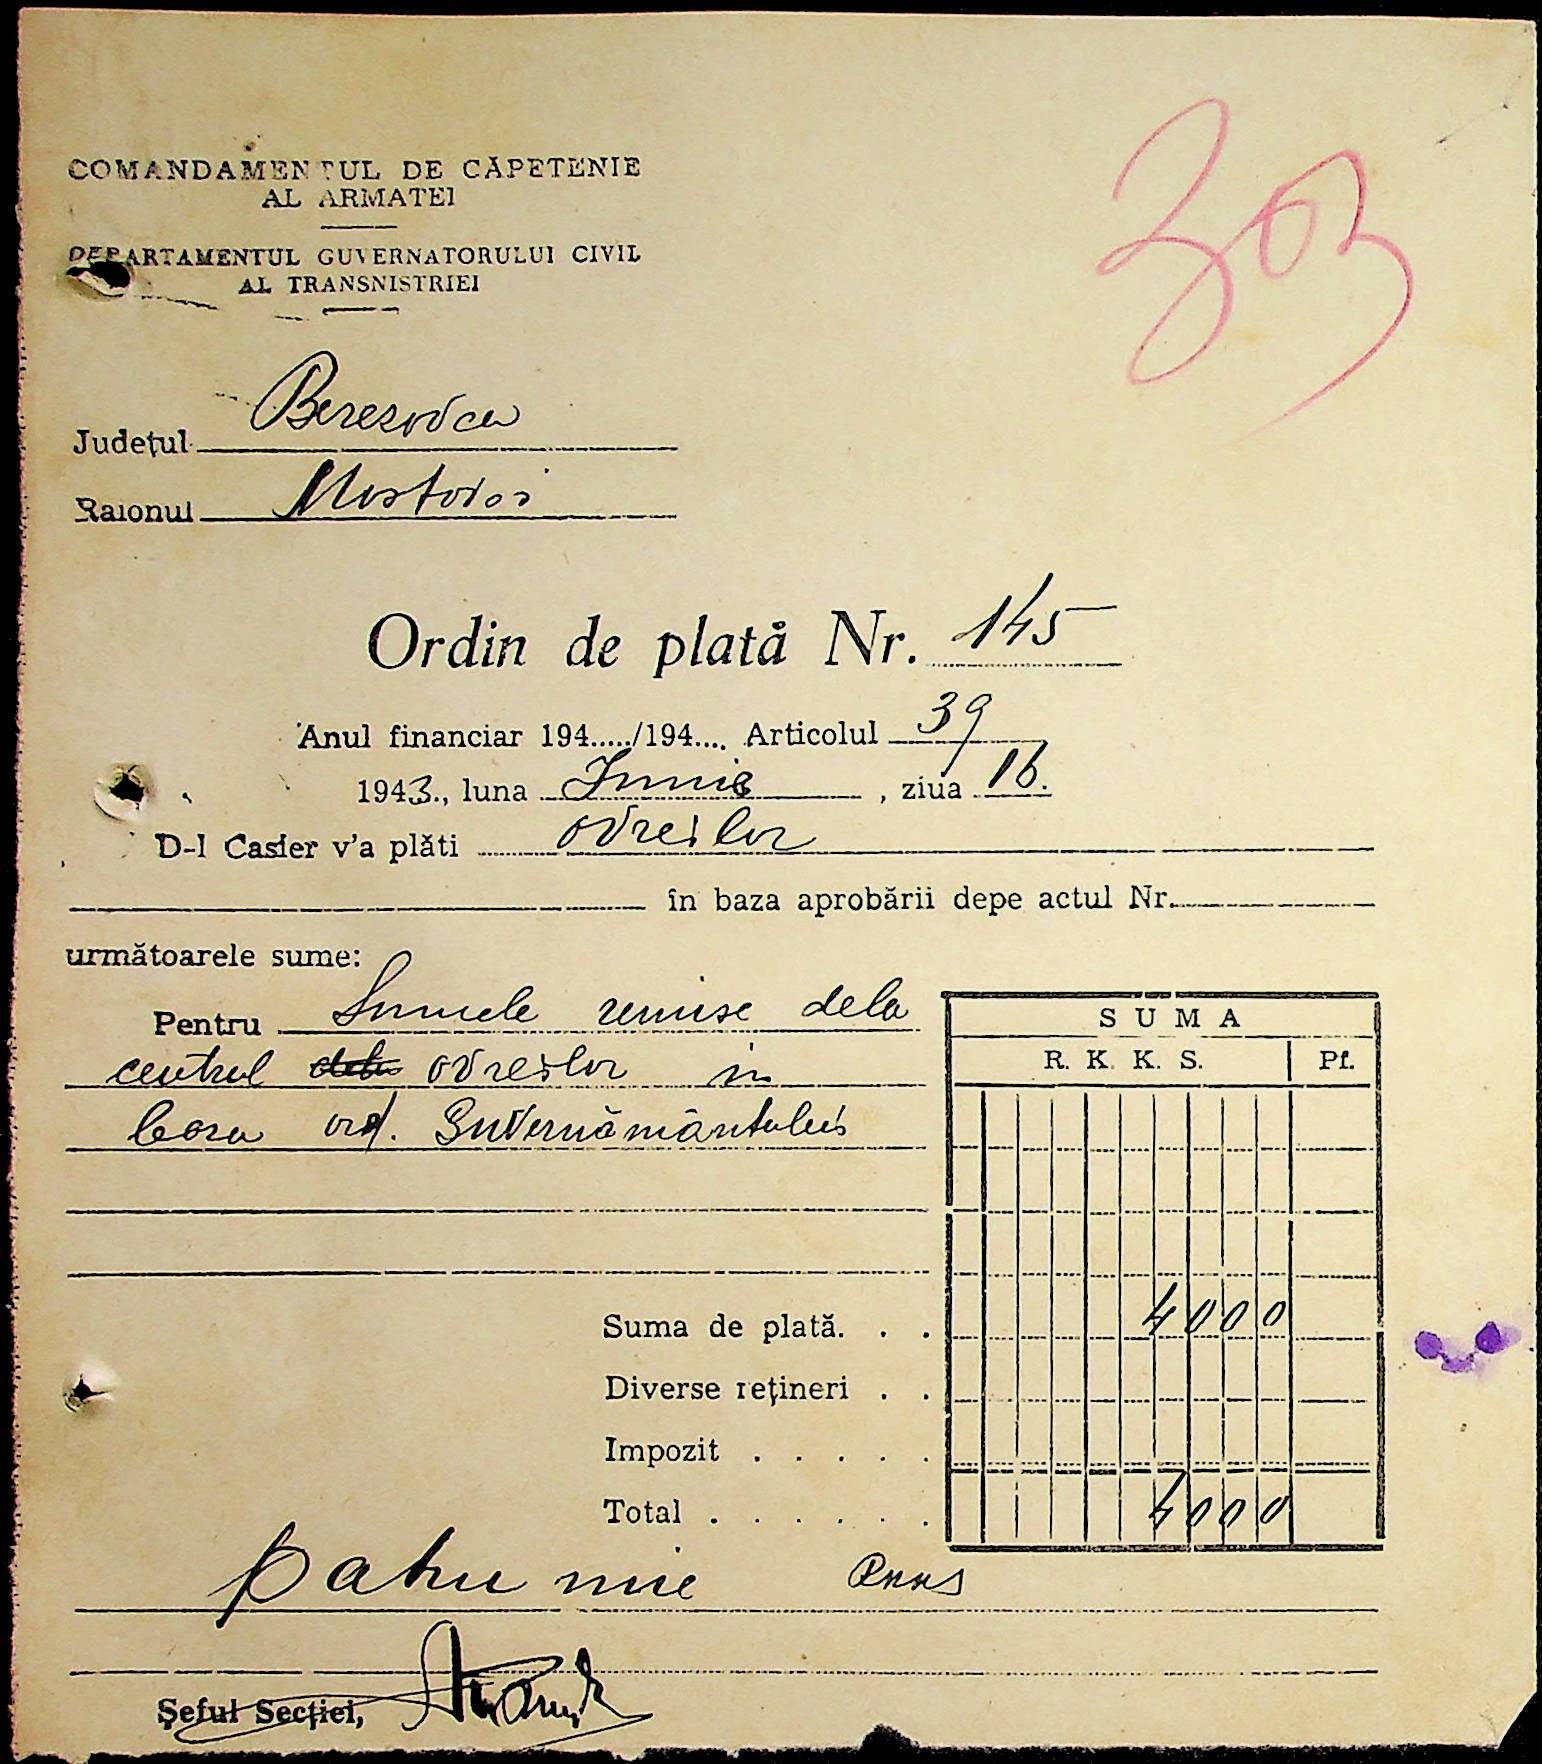 303
COMANDAMENTUL DE CĂPETENIE
AL ARMATEI
DEPARTAMENTUL GUVERNATORULUI CIVIL
AL TRANSNISTRIEI
Județul Berezovca
Raionul Mostovoi
Ordin de plată Nr. 145
Anul financiar 194...../194.... Articolul 39
1943., luna Iunie , ziua 16.
D-l Casier v'a plăti ovreilor
în baza aprobării depe actul Nr.
următoarele sume:
Pentru Sumele remise dela
centrul ovreilor in
baza ord. Guvernământului
S U M A
R. K. K. S. Pf.
Suma de plată. . . 4000
Diverse rețineri . .
Impozit . . . . .
Total . . . . . . 4000
patru mie RKKS
Șeful Secției,